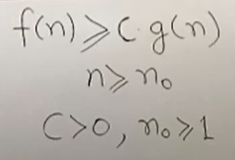 f(n) ⩾ C. g(n)
n ⩾ n₀
C > 0, n₀ ⩾ 1